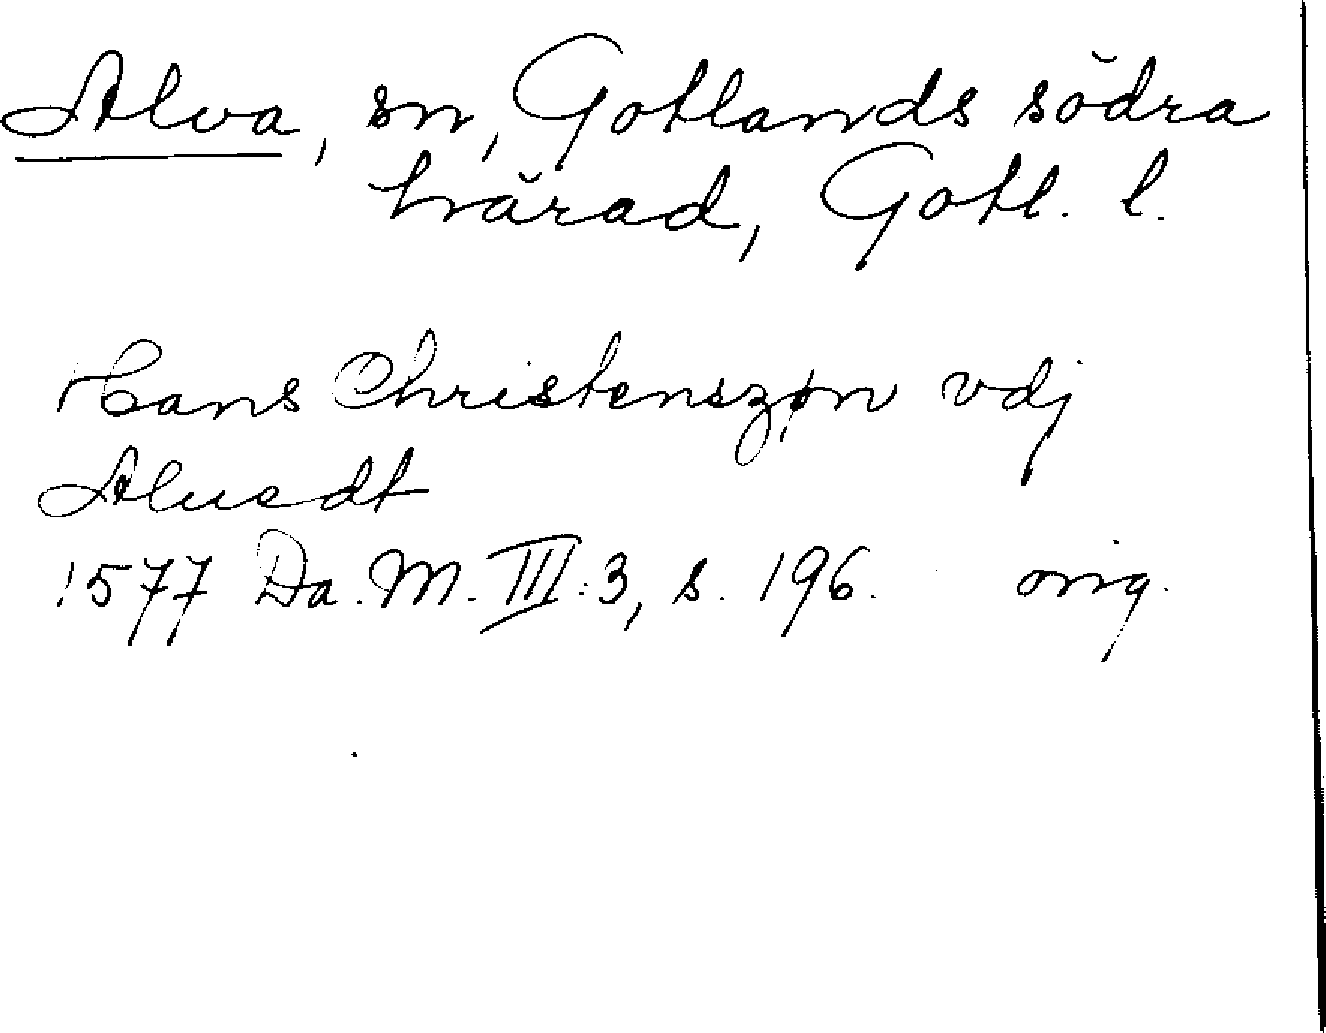 Alva, sn, Gotlands södra
härad, Gotl. l.
Hans Christenszøn vdj
Aluedt
1577 Da. M. III:3, s. 196. orig.